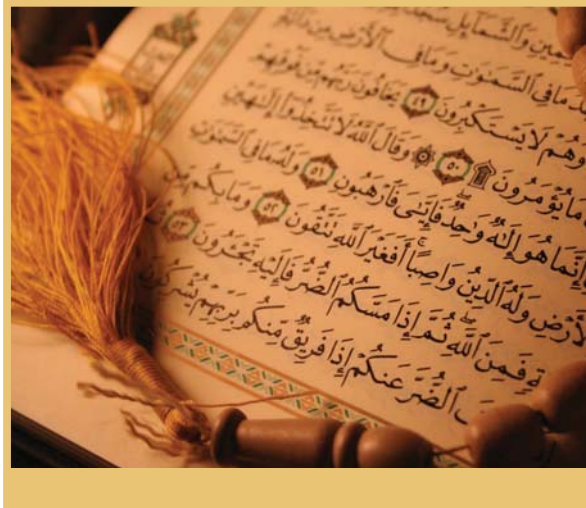 وَٱلشَّمَآئِلِ سُجَّدًا
مَا فِى ٱلسَّمَـٰوَٰتِ وَمَا فِى ٱلْأَرْضِ مِن دَآبَّةٍ
وَهُمْ لَا يَسْتَكْبِرُونَ ٤٩ يَخَافُونَ رَبَّهُم مِّن فَوْقِهِمْ
مَا يُؤْمَرُونَ ۩ ٥٠ ۞ وَقَالَ ٱللَّهُ لَا تَتَّخِذُوٓا۟ إِلَـٰهَيْنِ
إِنَّمَا هُوَ إِلَـٰهٌ وَٰحِدٌ فَإِيَّـٰىَ فَٱرْهَبُونِ ٥١ وَلَهُۥ مَا فِى ٱلسَّمَـٰوَٰتِ
وَٱلْأَرْضِ وَلَهُ ٱلدِّينُ وَاصِبًا ۚ أَفَغَيْرَ ٱللَّهِ تَتَّقُونَ ٥٢ وَمَا بِكُم مِّن
فَمِنَ ٱللَّهِ ۖ ثُمَّ إِذَا مَسَّكُمُ ٱلضُّرُّ فَإِلَيْهِ تَجْـَٔرُونَ ٥٣
ٱلضُّرَّ عَنكُمْ إِذَا فَرِيقٌ مِّنكُم بِرَبِّهِمْ يُشْرِكُونَ